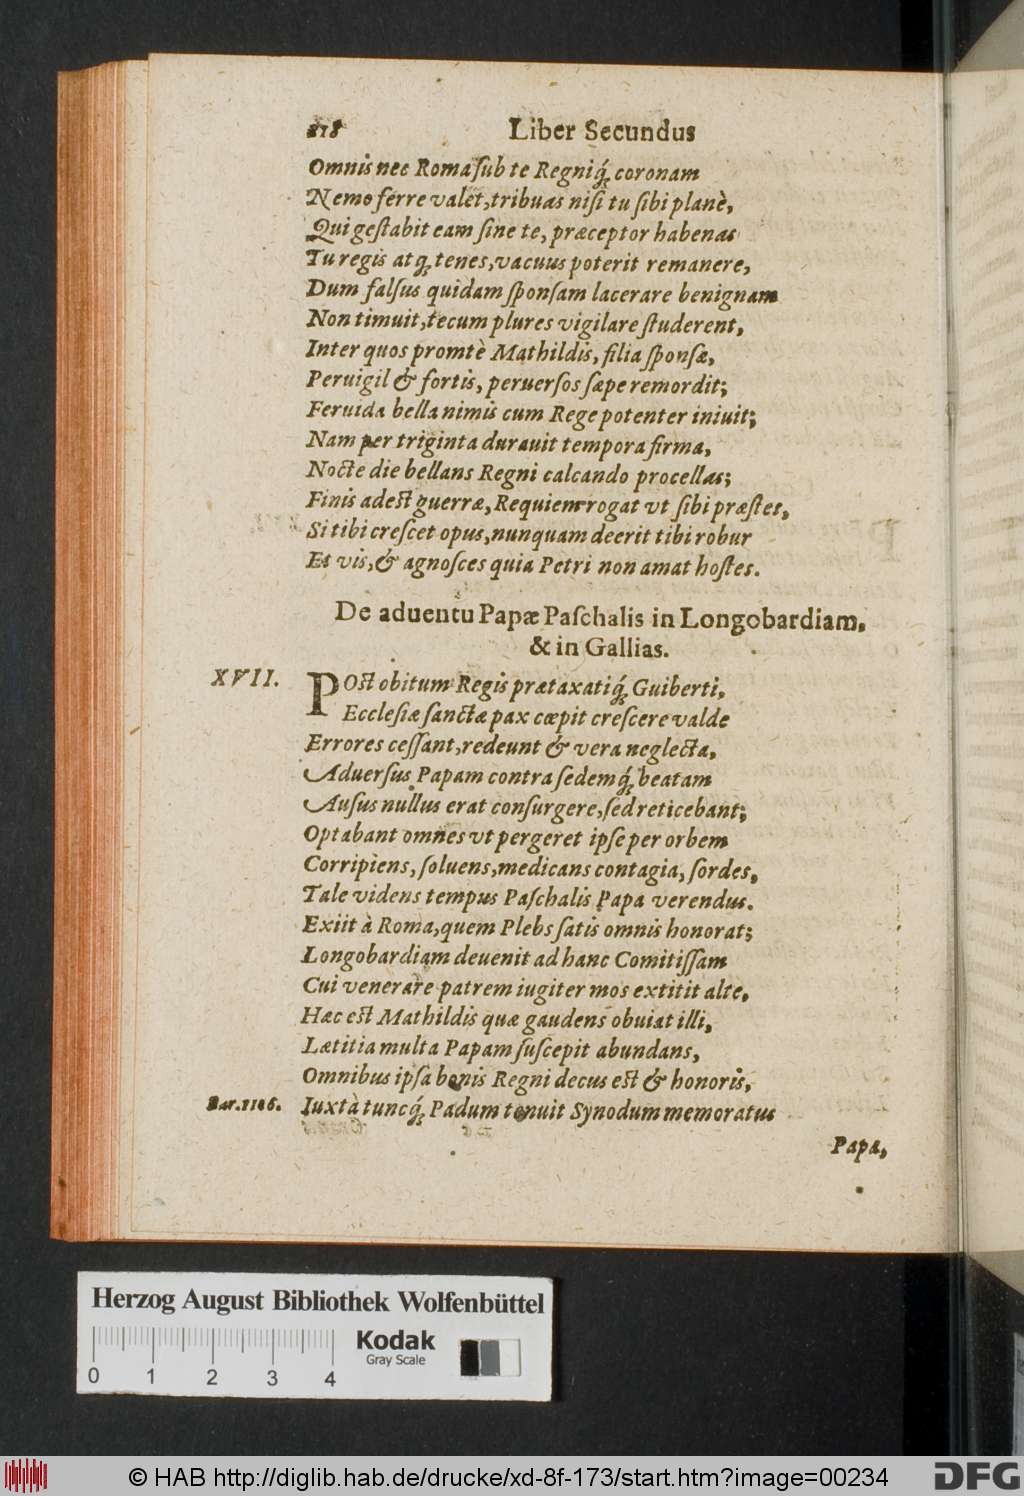 218 Liber Secundus
Omnis nec Roma ſub te Regniq́; coronam
Nemo ferre valet, tribuas niſi tu ſibi planè,
Qui geſtabit eam ſine te, præceptor habenas
Tu regis atq; tenes, vacuus poterit remanere,
Dum falſus quidam ſponſam lacerare benignam
Non timuit, tecum plures vigilare ſtuderent,
Inter quos promtè Mathildis, filia ſponſæ,
Peruigil & fortis, peruerſos ſæpe remordit;
Feruida bella nimis cum Rege potenter iniuit;
Nam per triginta durauit tempora firma,
Nocte die bellans Regni calcando procellas;
Finis adeſt guerræ, Requiem rogat vt ſibi præſtes,
Si tibi creſcet opus, nunquam deerit tibi robur
Et vis, & agnoſces quia Petri non amat hoſtes.
De aduentu Papæ Paſchalis in Longobardiam,
& in Gallias.
XVII. POſt obitum Regis prætaxatiq́; Guiberti,
Eccleſiæ ſanctæ pax cœpit creſcere valde
Errores ceſſant, redeunt & vera neglecta,
Aduerſus Papam contra ſedemq́; beatam
Auſus nullus erat conſurgere, ſed reticebant;
Optabant omnes vt pergeret ipſe per orbem
Corripiens, ſoluens, medicans contagia, ſordes,
Tale videns tempus Paſchalis Papa verendus.
Exiit à Roma, quem Plebs ſatis omnis honorat;
Longobardiam deuenit ad hanc Comitiſſam
Cui venerare patrem iugiter mos extitit alte,
Hæc eſt Mathildis quæ gaudens obuiat illi,
Lætitia multa Papam ſuſcepit abundans,
Omnibus ipſa bonis Regni decus eſt & honoris,
Bar. 1106. Iuxtà tuncq́; Padum tenuit Synodum memoratus
Papa,
Herzog August Bibliothek Wolfenbüttel
Kodak
Gray Scale
0 1 2 3 4
© HAB http://diglib.hab.de/drucke/xd-8f-173/start.htm?image=00234
DFG